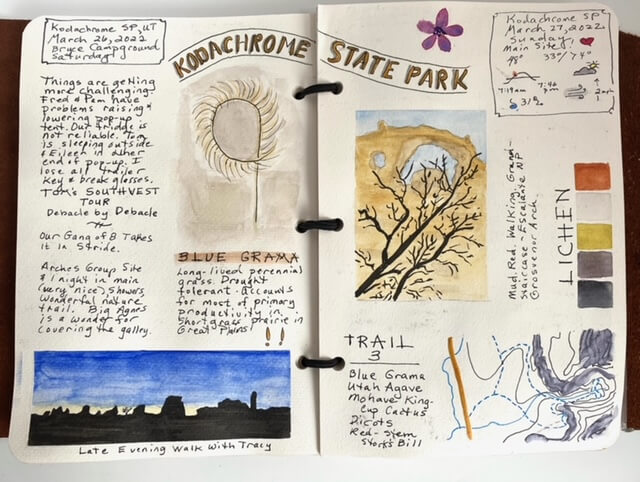 Kodachrome SP, UT
March 26, 2022
Bryce Campground
Saturday
KODACHROME STATE PARK
Things are getting
more challenging.
Fred & Pam have
problems raising &
lowering pop-up
tent. Our fridge is
not reliable. Tom
is sleeping outside
& Eileen in other
end of pop-up. I
lose all trailer
key & break glasses.
TOM'S SOUTHWEST
TOUR
Debacle by Debacle
Our Gang of 8 Takes
it In Stride.
Arches Group Site
& 1 night in main
(very nice) Showers
Wonderful nature
trail. Big Agnes
is a wonder for
covering the galley.
BLUE GRAMA
Long-lived perennial
grass. Drought
tolerant. Accounts
for most of primary
productivity in
Shortgrass prairie in
Great Plains
!!
Late Evening Walk With Tracy
Kodachrome SP
March 27, 2022
Sunday
Main Site!
33°/74°
7:19am
7:46
pm
Mud. Red. Walking. Grand-
Staircase-Escalante NP
Grosvenor Arch.
LICHEN
TRAIL
3
Blue Grama
Utah Agave
Mohave King-
Cup Cactus
Dicots
Red-Stem
Stork's Bill